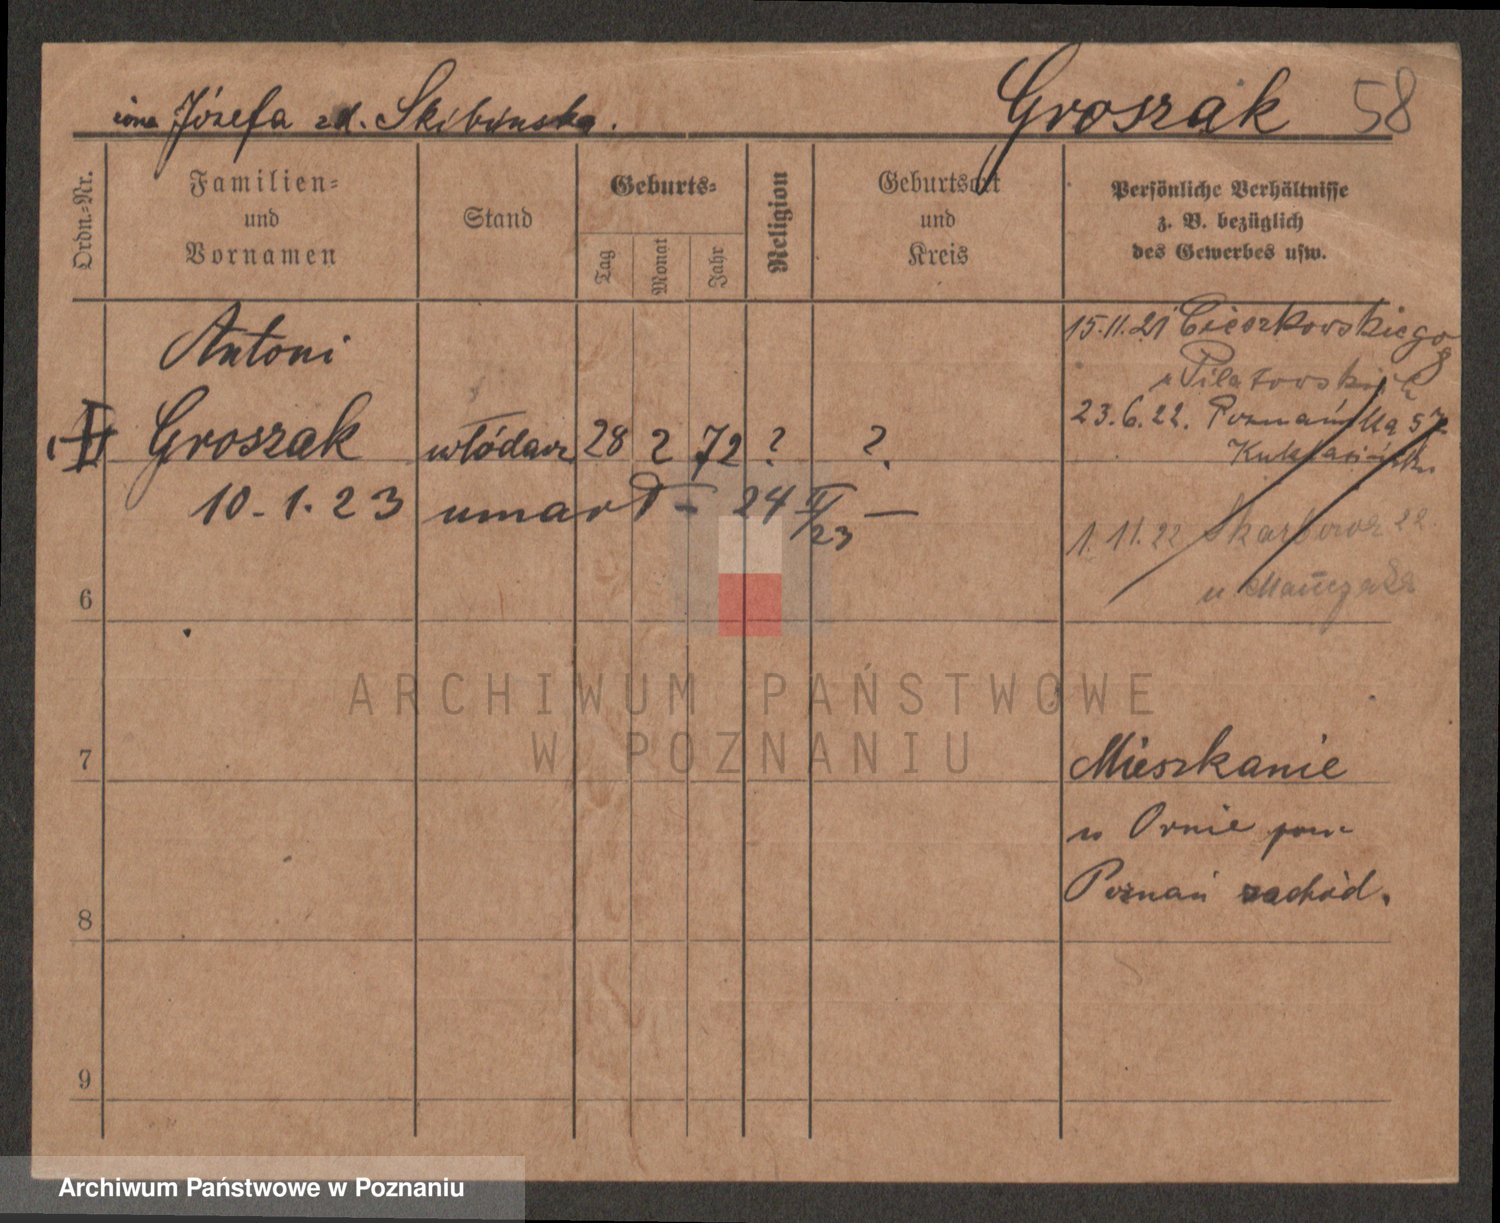 żona Józefa zd. Skibinska.
Groszak 58
Ordn.-Nr.
Familien-
und
Vornamen
Stand
Geburts-
Tag
Monat
Jahr
Religion
Geburtsort
und
Kreis
Persönliche Verhältnisse
z. B. bezüglich
des Gewerbes usw.
Antoni
Groszak włódarz 28 2 72 ? ?.
10-1.23 umarł - 24 II/23 —
15.11.21 Cieszkowskiego 8
u Pilatowskich
23.6.22. Poznańska 57
1.11.22 Skarbowa 22
u
6
7
8
9
Mieszkanie
w Ornie pow
Poznań zachód.
ARCHIWUM PAŃSTWOWE
W POZNANIU
Archiwum Państwowe w Poznaniu